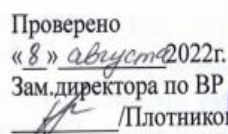 Проверено
« 8 » августа 2022г.
Зам.директора по ВР
/Плотников